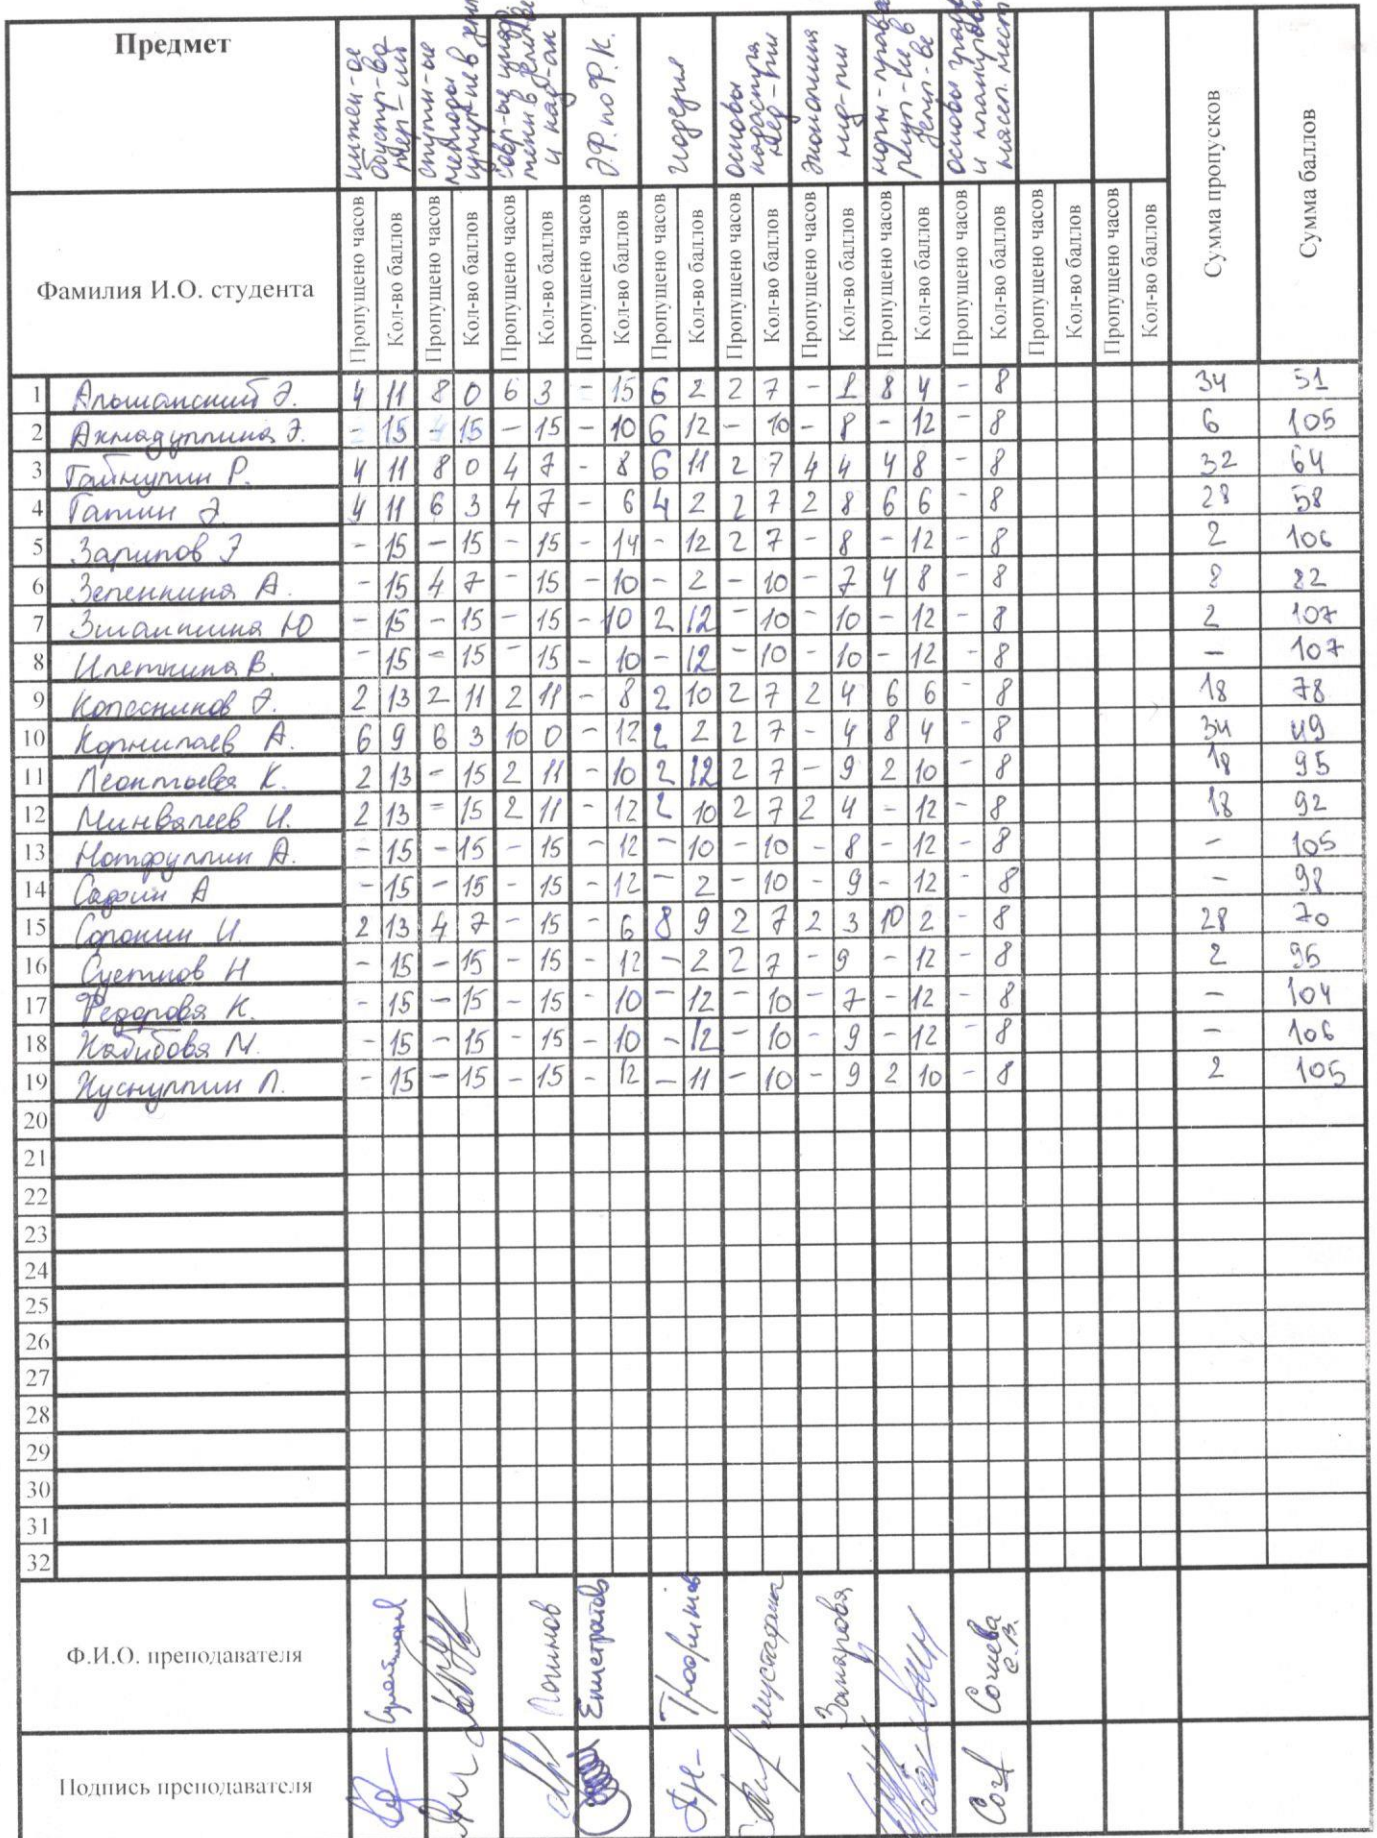 Предмет
инжен-ое обустр-во тер-ии
спутн-ые методы
Э.Ф. по Ф.К.
геодезия
основы кадастра нед-ти
экономика нед-ти
норм-правов регул-ие в земл-ве
основы град и планировки насел. мест
Сумма пропусков
Сумма баллов
Фамилия И.О. студента
Пропущено часов Кол-во баллов Пропущено часов Кол-во баллов Пропущено часов Кол-во баллов Пропущено часов Кол-во баллов Пропущено часов Кол-во баллов Пропущено часов Кол-во баллов Пропущено часов Кол-во баллов Пропущено часов Кол-во баллов Пропущено часов Кол-во баллов Пропущено часов Кол-во баллов Пропущено часов Кол-во баллов
1 Альшанский Э. 4 11 8 0 6 3 - 15 6 2 2 7 - 2 8 4 - 8 34 51
2 Ахмадуллина Э. - 15 - 15 - 15 - 10 6 12 - 10 - 8 - 12 - 8 6 105
3 Гайнулин Р. 4 11 8 0 4 7 - 8 6 11 2 7 4 4 4 8 - 8 32 64
4 Гатин Э. 4 11 6 3 4 7 - 6 4 2 2 7 2 8 6 6 - 8 28 58
5 Зарипов Э - 15 - 15 - 15 - 14 - 12 2 7 - 8 - 12 - 8 2 106
6 Зеленкина А. - 15 4 7 - 15 - 10 - 2 - 10 - 7 4 8 - 8 8 82
7 Зиганшина Ю - 15 - 15 - 15 - 10 2 12 - 10 - 10 - 12 - 8 2 107
8 Илеткина В. - 15 - 15 - 15 - 10 - 12 - 10 - 10 - 12 - 8 - 107
9 Колесников Э. 2 13 2 11 2 11 - 8 2 10 2 7 2 4 6 6 - 8 18 78
10 Корнилаев А. 6 9 6 3 10 0 - 12 2 2 2 7 - 4 8 4 - 8 34 49
11 Леонтьева К. 2 13 - 15 2 11 - 10 2 12 2 7 - 9 2 10 - 8 18 95
12 Минвалеев И. 2 13 - 15 2 11 - 12 2 10 2 7 2 4 - 12 - 8 18 92
13 Нотфуллин А. - 15 - 15 - 15 - 12 - 10 - 10 - 8 - 12 - 8 - 105
14 Садоин А - 15 - 15 - 15 - 12 - 2 - 10 - 9 - 12 - 8 - 98
15 Сорокин И. 2 13 4 7 - 15 - 6 8 9 2 7 2 3 10 2 - 8 28 70
16 Суетнов Н - 15 - 15 - 15 - 12 - 2 2 7 - 9 - 12 - 8 2 95
17 Федорова К. - 15 - 15 - 15 - 10 - 12 - 10 - 7 - 12 - 8 - 104
18 Хабибова М. - 15 - 15 - 15 - 10 - 12 - 10 - 9 - 12 - 8 - 106
19 Хуснуллин Л. - 15 - 15 - 15 - 12 - 11 - 10 - 9 2 10 - 8 2 105
20
21
22
23
24
25
26
27
28
29
30
31
32
Ф.И.О. преподавателя Логинов Енистратов Трофимов Мустафин Замарова Сочнева С.В.
Подпись преподавателя